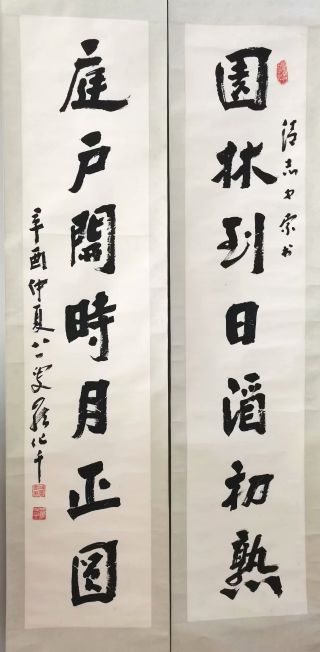 園林到日酒初熟
庭户開時月正圓
辛酉仲夏八一叟羅化千